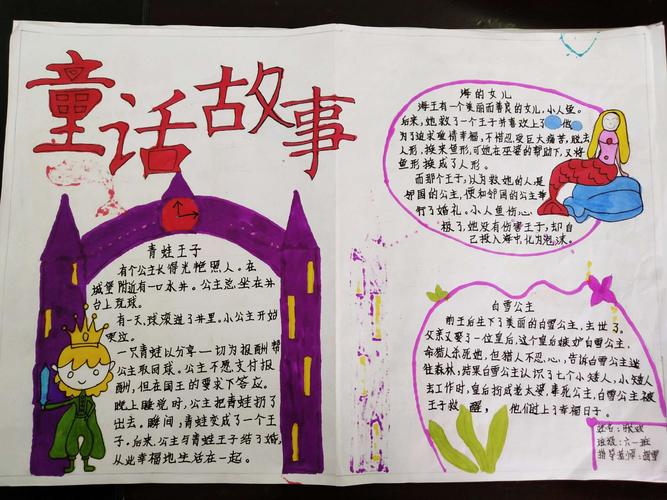 童话故事
青蛙王子
有个公主长得光艳照人。在
城堡附近有一口水井。公主总坐在井
台上玩球。
有一天,球滚进了井里。小公主开始
哭泣。
一只青蛙以分享一切为报酬帮
公主取回球。公主不愿支付报
酬,但在国王的要求下答应。
晚上睡觉时,公主把青蛙扔了
出去。瞬间,青蛙变成了一个王
子。后来,公主与青蛙王子结了婚,
从此幸福地生活在一起。
海的女儿
海王有一个美丽而善良的女儿,小人鱼。
后来,她救了一个王子并喜欢上了他
为了追求爱情幸福,不惜忍受巨大痛苦,脱去
人形,换来鱼形,可她在巫婆的帮助下,又将
鱼形换成了人形。
而那个王子,以为救她的人是
邻国的公主,便和邻国的公主举
行了婚礼。小人鱼伤心
极了,她没有伤害王子,却自
己投入海中,化为泡沫。
白雪公主
前王后生下了美丽的白雪公主,去世了。
父亲又娶了一位皇后,这个皇后嫉妒白雪公主,
命猎人杀死她,但猎人不忍心,告诉白雪公主逃
往森林,结果白雪公主认识了七个小矮人,小矮人
去工作时,皇后扮成老太婆,毒死公主,白雪公主被
王子救醒,他们过上了幸福日子。
姓名:
班级:六一班
指导老师: